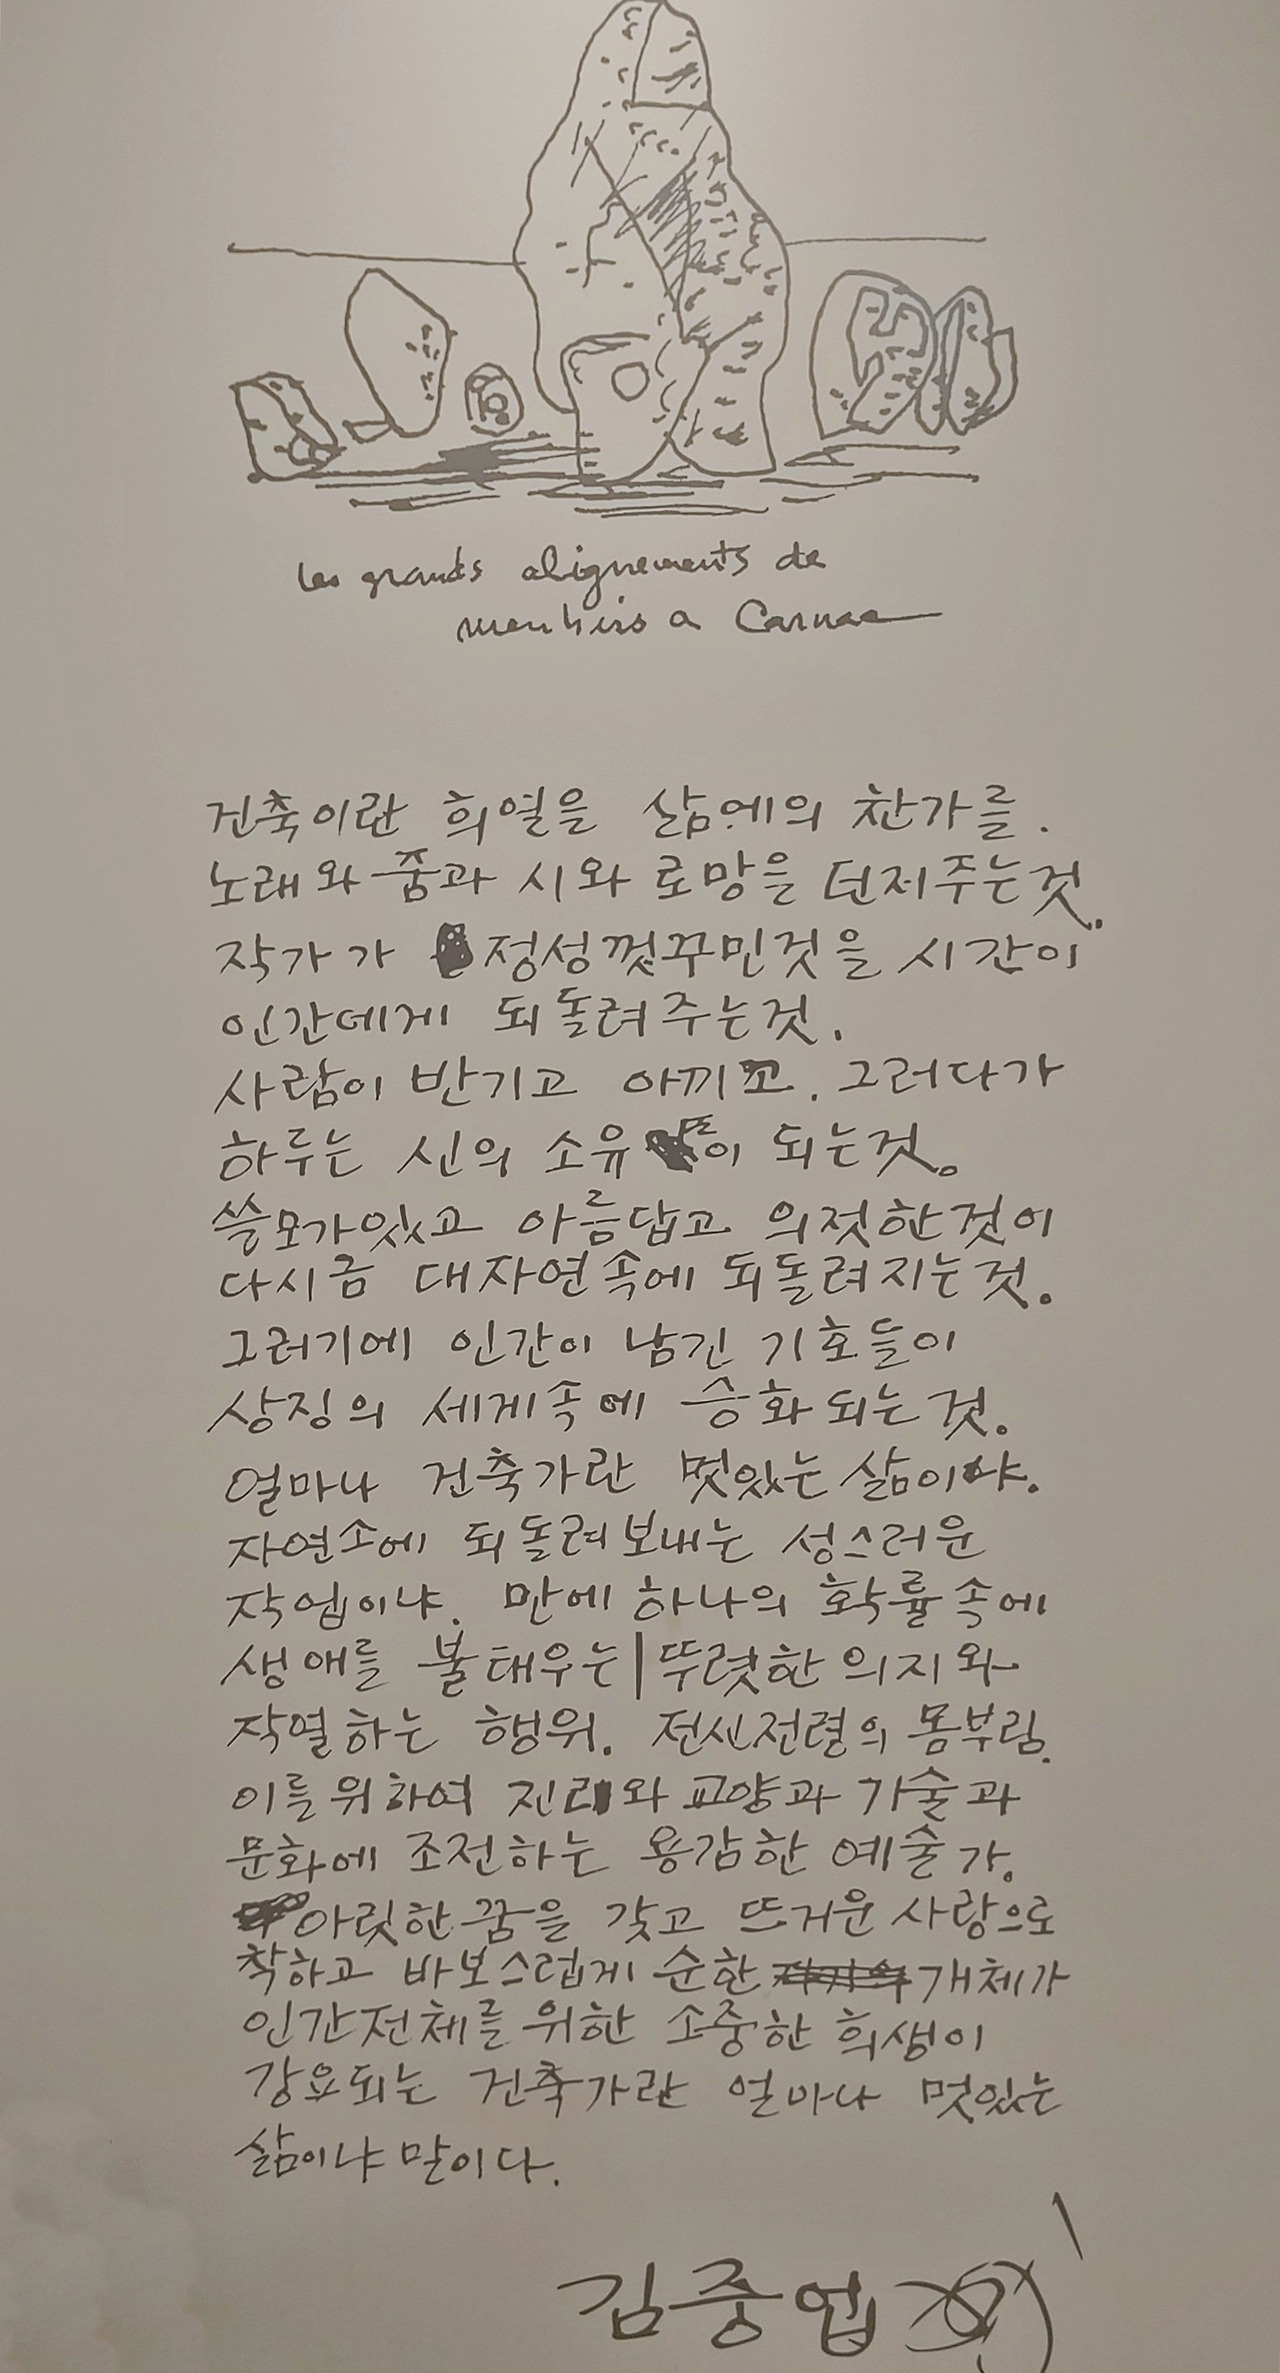 les grands alignements de
menhirs a Carnac
건축이란 희열을 삶에의 찬가를.
노래와 꿈과 시와 로망을 던저주는것.
작가가 정성껏꾸민것을 시간이
인간데게 되돌려주는것.
사람이 반기고 아끼고. 그러다가
하루는 신의 소유 이 되는것.
쓸모가있고 아름답고 의젓한것이
다시금 대자연속에 되돌려지는것.
그러기에 인간이 남긴 기호들이
상징의 세게속에 승화되는것.
얼마나 건축가란 멋있는 삶이냐.
자연소에 되돌려보내는 성스러운
작업이냐. 만에 하나의 확률속에
생애를 불태우는 뚜렷한 의지와
작열하는 행위. 전신전령의 몸부림.
이를위하여 진리와 교양과 기술과
문화에 조전하는 용감한 예술가.
아릿한꿈을 갖고 뜨거운 사랑으로
착하고 바보스럽게 순한 개체가
인간전체를 위한 소중한 희생이
강요되는 건축가란 얼마나 멋있는
삶이냐 말이다.
김중업